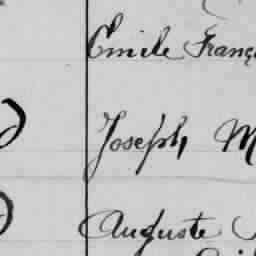 Emile Franç
Joseph M
Auguste